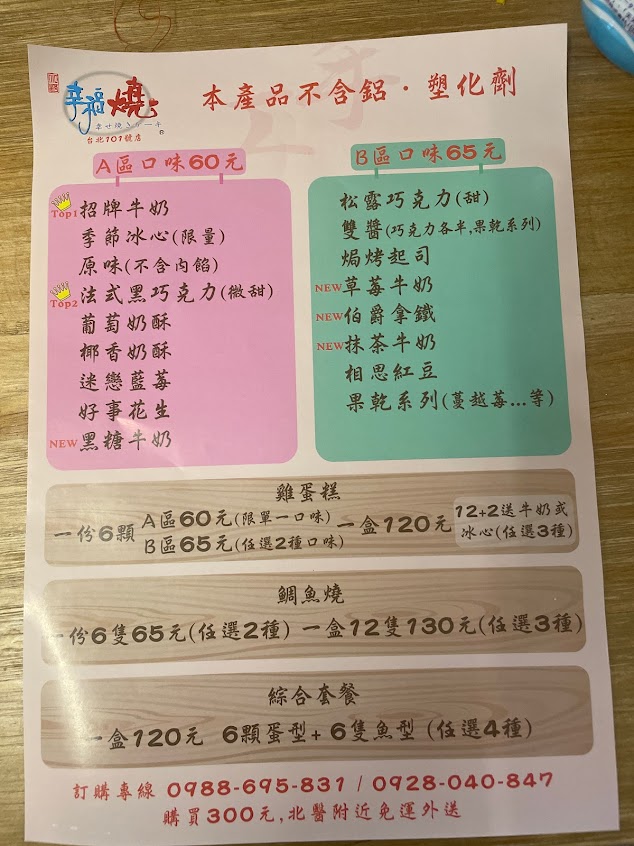 幸福燒
幸せ燒き
台北101號店
本產品不含鋁·塑化劑
A區口味60元
Top1招牌牛奶
季節冰心(限量)
原味(不含內餡)
Top2法式黑巧克力(微甜)
葡萄奶酥
椰香奶酥
迷戀藍莓
好事花生
NEW黑糖牛奶
B區口味65元
松露巧克力(甜)
雙醬(巧克力各半,果乾系列)
焗烤起司
NEW草莓牛奶
NEW伯爵拿鐵
NEW抹茶牛奶
相思紅豆
果乾系列(蔓越莓...等)
雞蛋糕
一份6顆
A區60元(限單一口味)
B區65元(任選2種口味)
一盒120元
12+2送牛奶或
冰心(任選3種)
鯛魚燒
一份6隻65元(任選2種) 一盒12隻130元(任選3種)
綜合套餐
一盒120元 6顆蛋型+6隻魚型 (任選4種)
訂購專線 0988-695-831 / 0928-040-847
購買300元,北醫附近免運外送